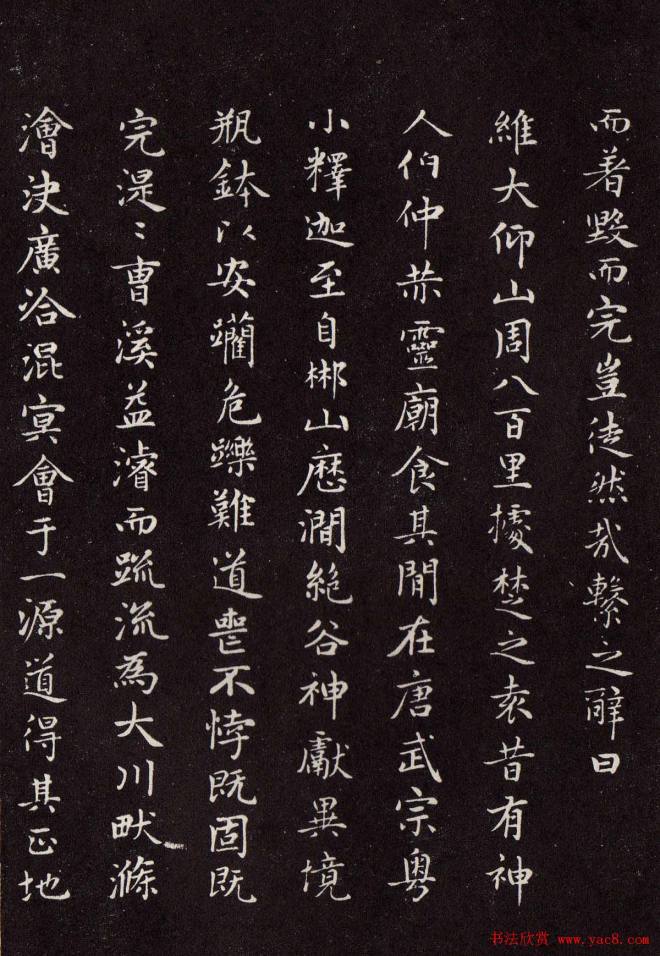 而著毀而完豈徒然哉繫之辭曰
維大仰山周八百里據楚之袁昔有神
人伯仲恭靈廟食其閒在唐武宗粵
小釋迦至自郴山歷澗絕谷神獻異境
瓶鉢以安躪危躒難道喪不悖既固既
完湜〻曹溪益濬而疏流為大川畎滌
澮決廣谷混冥會于一源道得其正地
书法欣赏 www.yac8.com